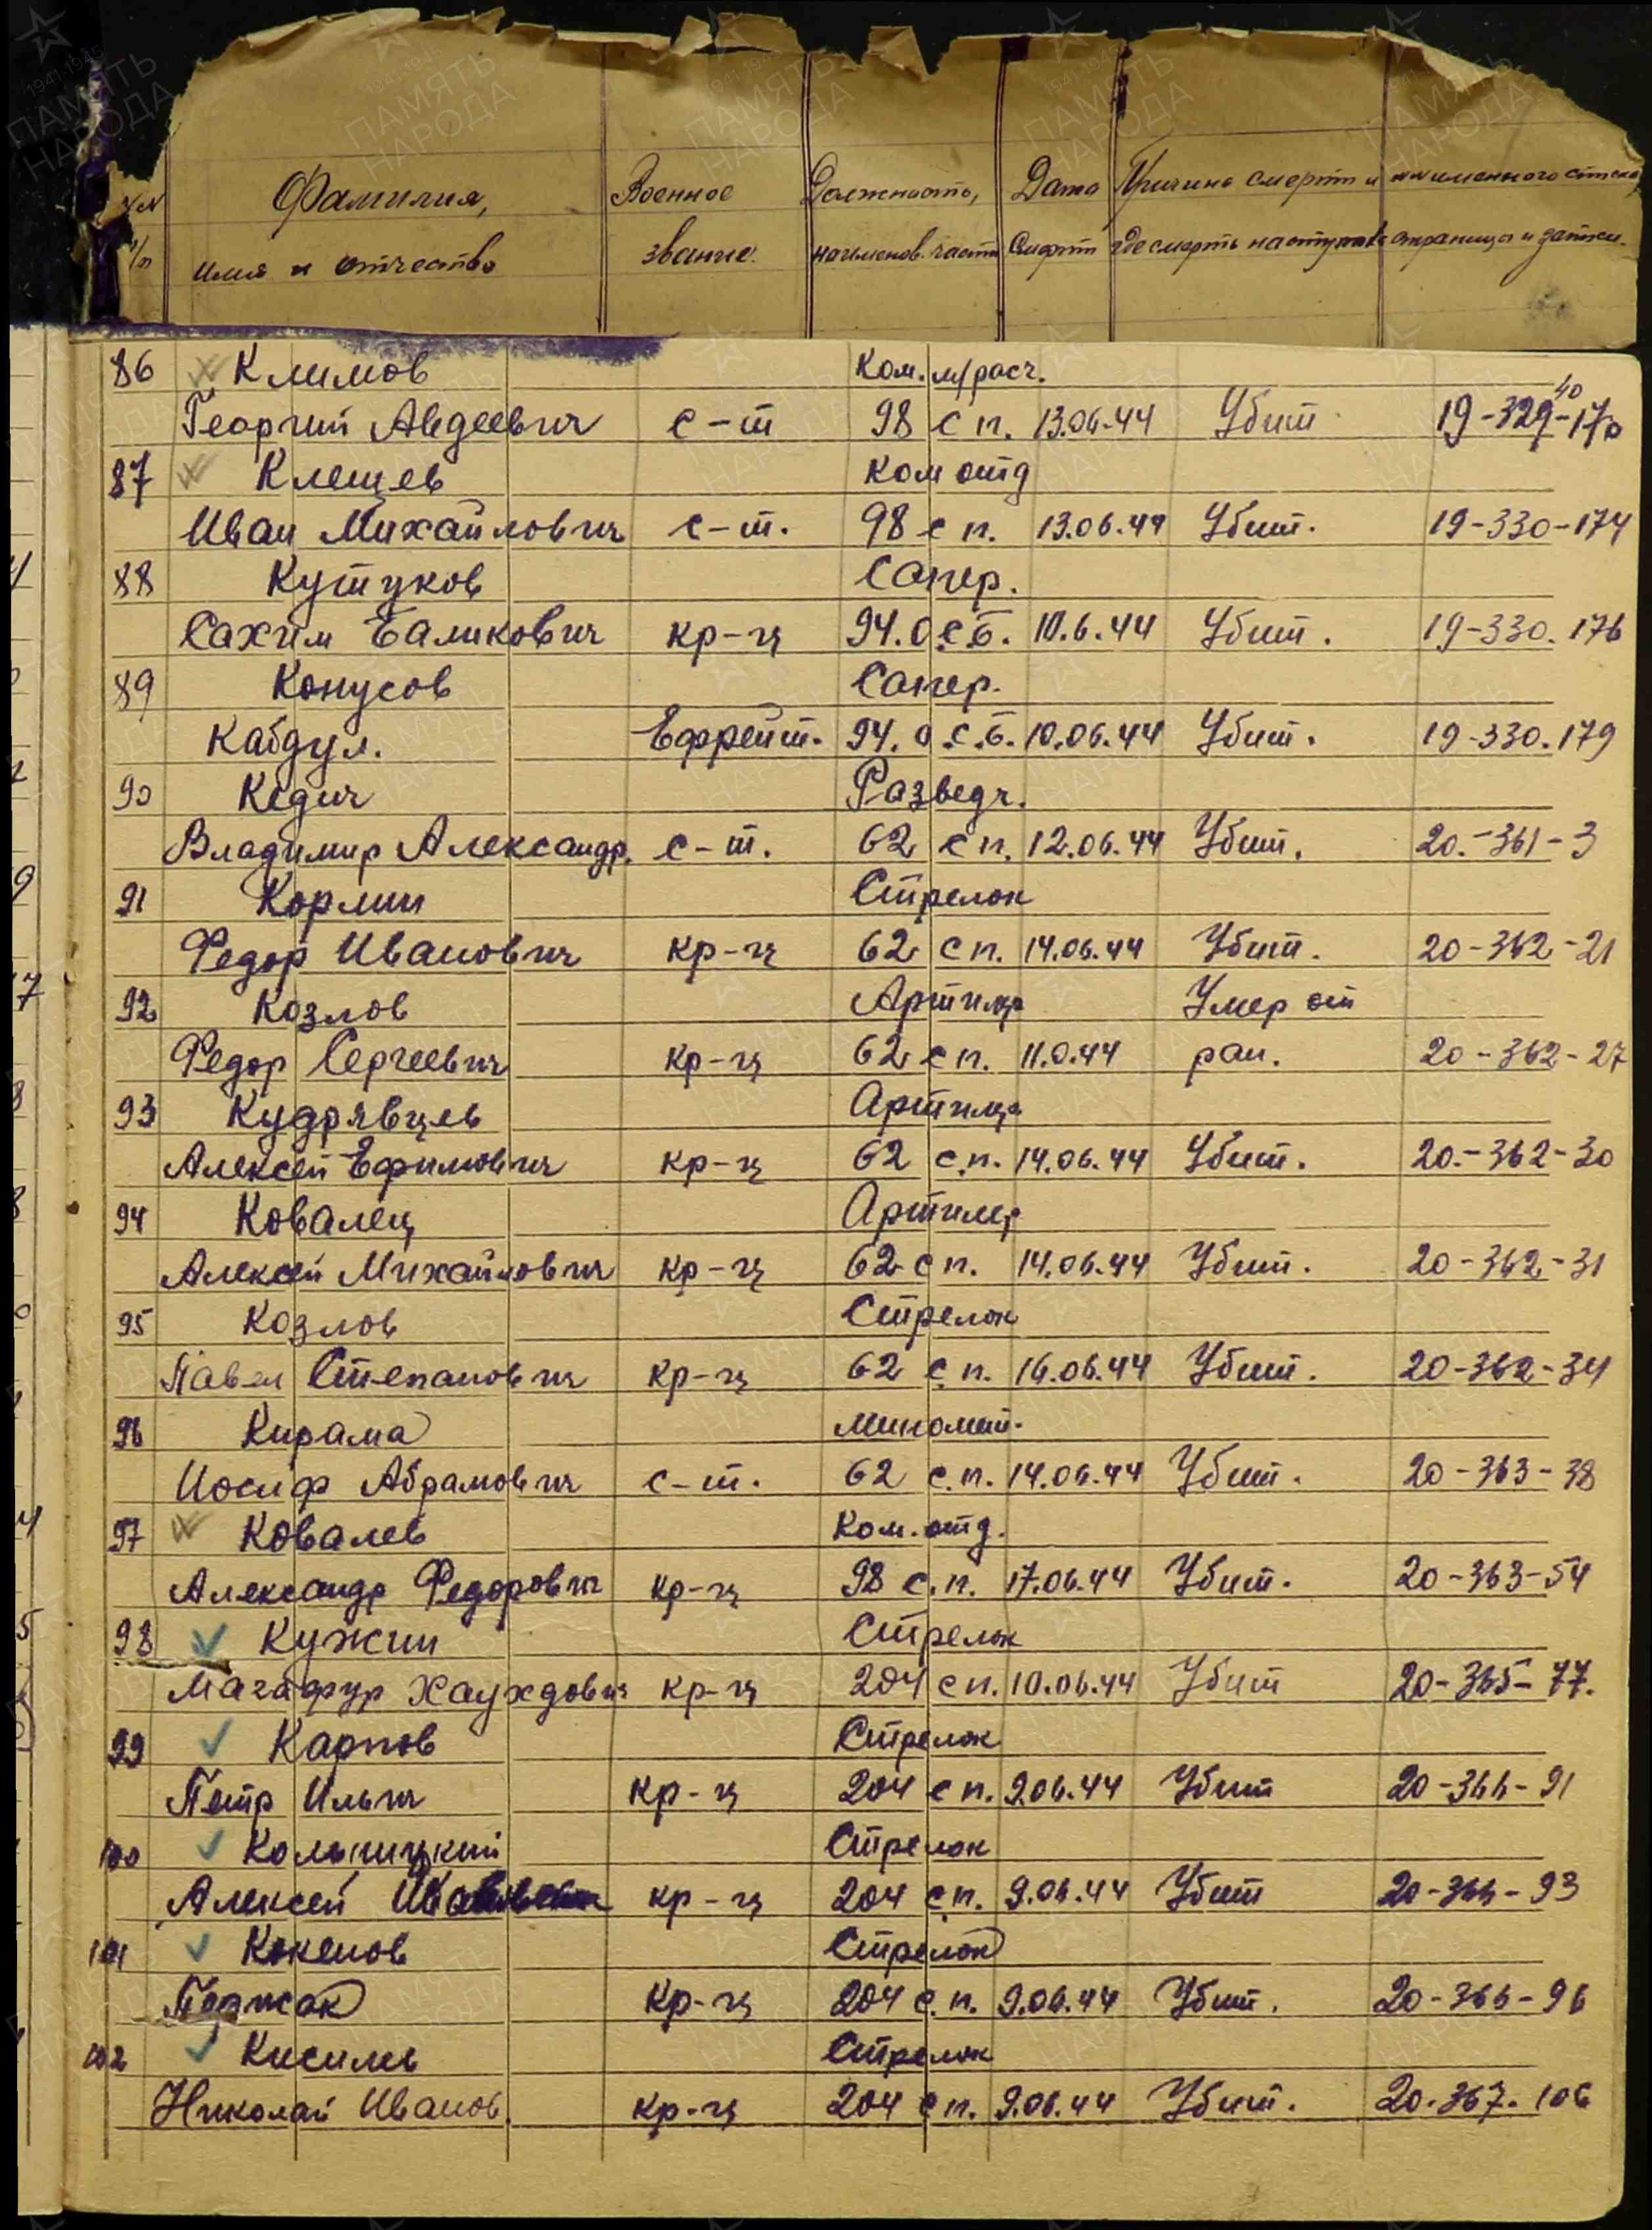 №№ Фамилия, Военное Должность, Дата Причина смерти и №№ именного списка,
п/п имя и отчество звание. наименов. части смерти где смерть наступила страница и запись.
86 Климов Ком. м/расч.
Георгий Авдеевич с-т 98 с п. 13.06.44 Убит 19-329-170
40
87 Клещев Ком отд
Иван Михайлович с-т. 98 с п. 13.06.44 Убит. 19-330-174
88 Кутуков Сапер.
Сахим Баликович кр-ц 94.О.С.Б. 10.6.44 Убит. 19-330.176
89 Конусов Сапер.
Кабдул. Ефрейт. 94.О.С.Б. 10.06.44 Убит. 19-330.179
90 Кедич Разведч.
Владимир Александр. с-т. 62 с п. 12.06.44 Убит. 20.-361-3
91 Кормин Стрелок
Федор Иванович кр-ц 62 с п. 14.06.44 Убит. 20-362-21
92 Козлов Артилер Умер от
Федор Сергеевич кр-ц 62 с п. 11.0.44 ран. 20-362-27
93 Кудрявцев Артилер
Алексей Ефимович кр-ц 62 с.п. 14.06.44 Убит. 20.-362-30
94 Ковалец Артилер
Алексей Михайлович кр-ц 62 с п. 14.06.44 Убит. 20-362-31
95 Козлов Стрелок
Павел Степанович кр-ц 62 с п. 16.06.44 Убит. 20-362-34
96 Кирама миномет.
Иосиф Абрамович с-т. 62 с.п. 14.06.44 Убит. 20-363-38
97 Ковалев Ком. отд.
Александр Федорович кр-ц 98 с.п. 17.06.44 Убит. 20-363-54
98 Кужин Стрелок
Магафур Хауждович кр-ц 204 с п. 10.06.44 Убит 20-365-77.
99 Карпов Стрелок
Петр Ильич кр-ц 204 с п. 9.06.44 Убит 20-366-91
100 Стрелок
Алексей кр-ц 204 с п. 9.06.44 Убит 20-366-93
101 Кокенов Стрелок
кр-ц 204 с.п. 9.06.44 Убит. 20-366-96
102 Кисилев Стрелок
Николай Иванов. кр-ц 204 с п. 9.06.44 Убит. 20.367.106